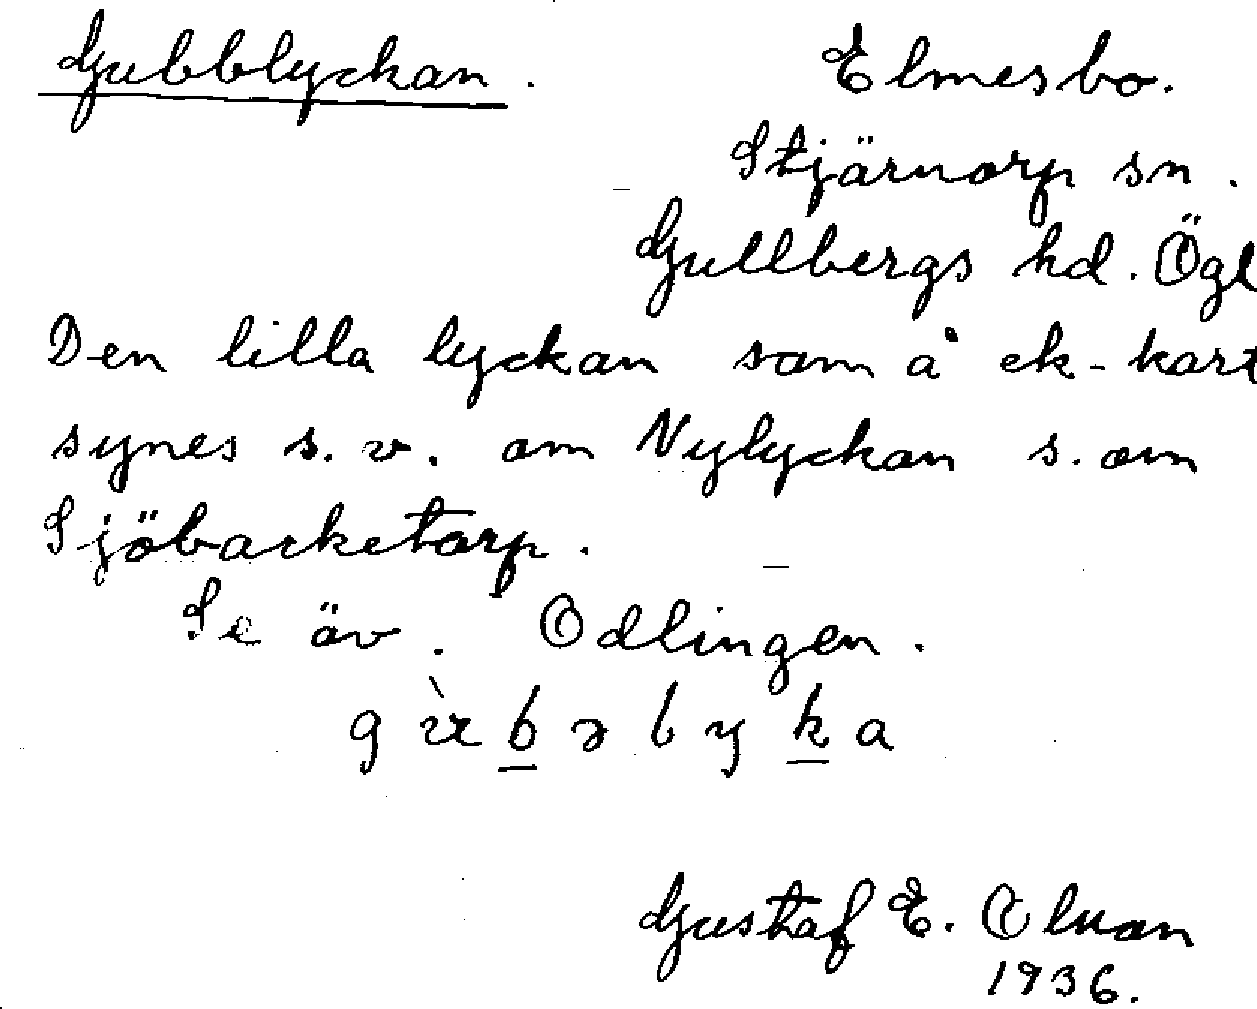 Gubblyckan. Elmesbo.
Stjärnorp sn.
Gullbergs hd. Ögl
Den lilla lyckan som å ek-kart
synes s.v. om Nylyckan s. om
Sjöbacketorp.
Se äv. Odlingen.
Gustaf E.
1936.